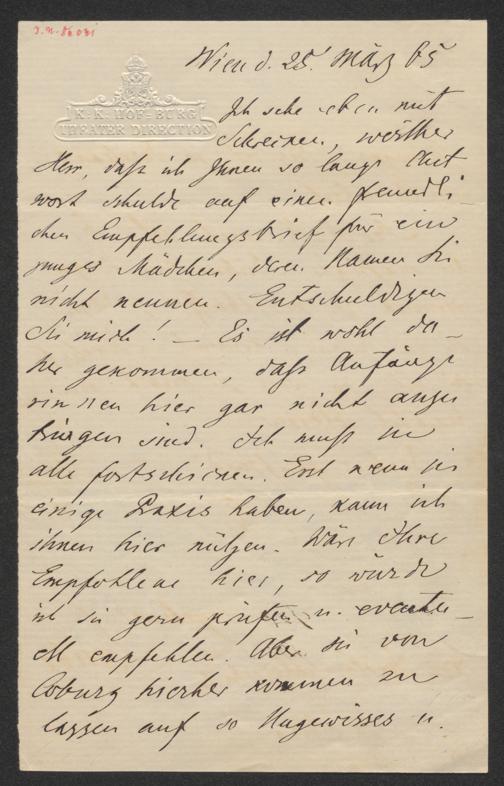 J.N. 86081
K. K. HOF-BURG
THEATER DIRECTION
Wien d. 25. März 65
Ich sehe eben mit
Schrecken, werther
Herr, daß ich Ihnen so lange Ant
wort schulde auf einen freundli
chen Empfehlungsbrief für ein
junges Mädchen, deren Namen Sie
nicht nennen. Entschuldigen
Sie mich! — Es ist wohl da-
her gekommen, daß Anfänge
rinnen hier gar nicht anzu
bringen sind. Ich muß sie
alle fortschicken. Erst wenn sie
einige Praxis haben, kann ich
ihnen hier nützen. Wäre Ihre
Empfohlene hier, so würde
ich sie gern prüfen u. eventu-
ell empfehlen. Aber sie von
Coburg hierher kommen zu
lassen auf so Ungewisses u.